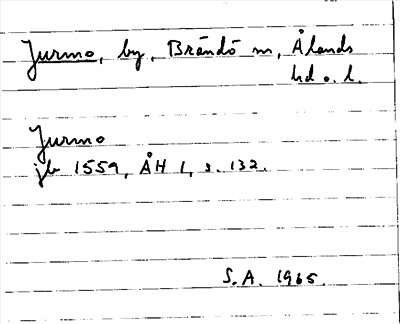 Jurmo, by, Brändö sn, Ålands
hd o. l.
Jurmo
jb 1559, ÅH 1, s. 132.
S.A. 1965.